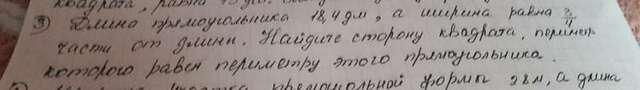 квадрата, равна
③ Длина прямоугольника 18,4 дм, а ширина равна 3/4
части от длины. Найдите сторону квадрата, периметр
которого равен периметру этого прямоугольника.
прямоугольной формы 28 м, а длина